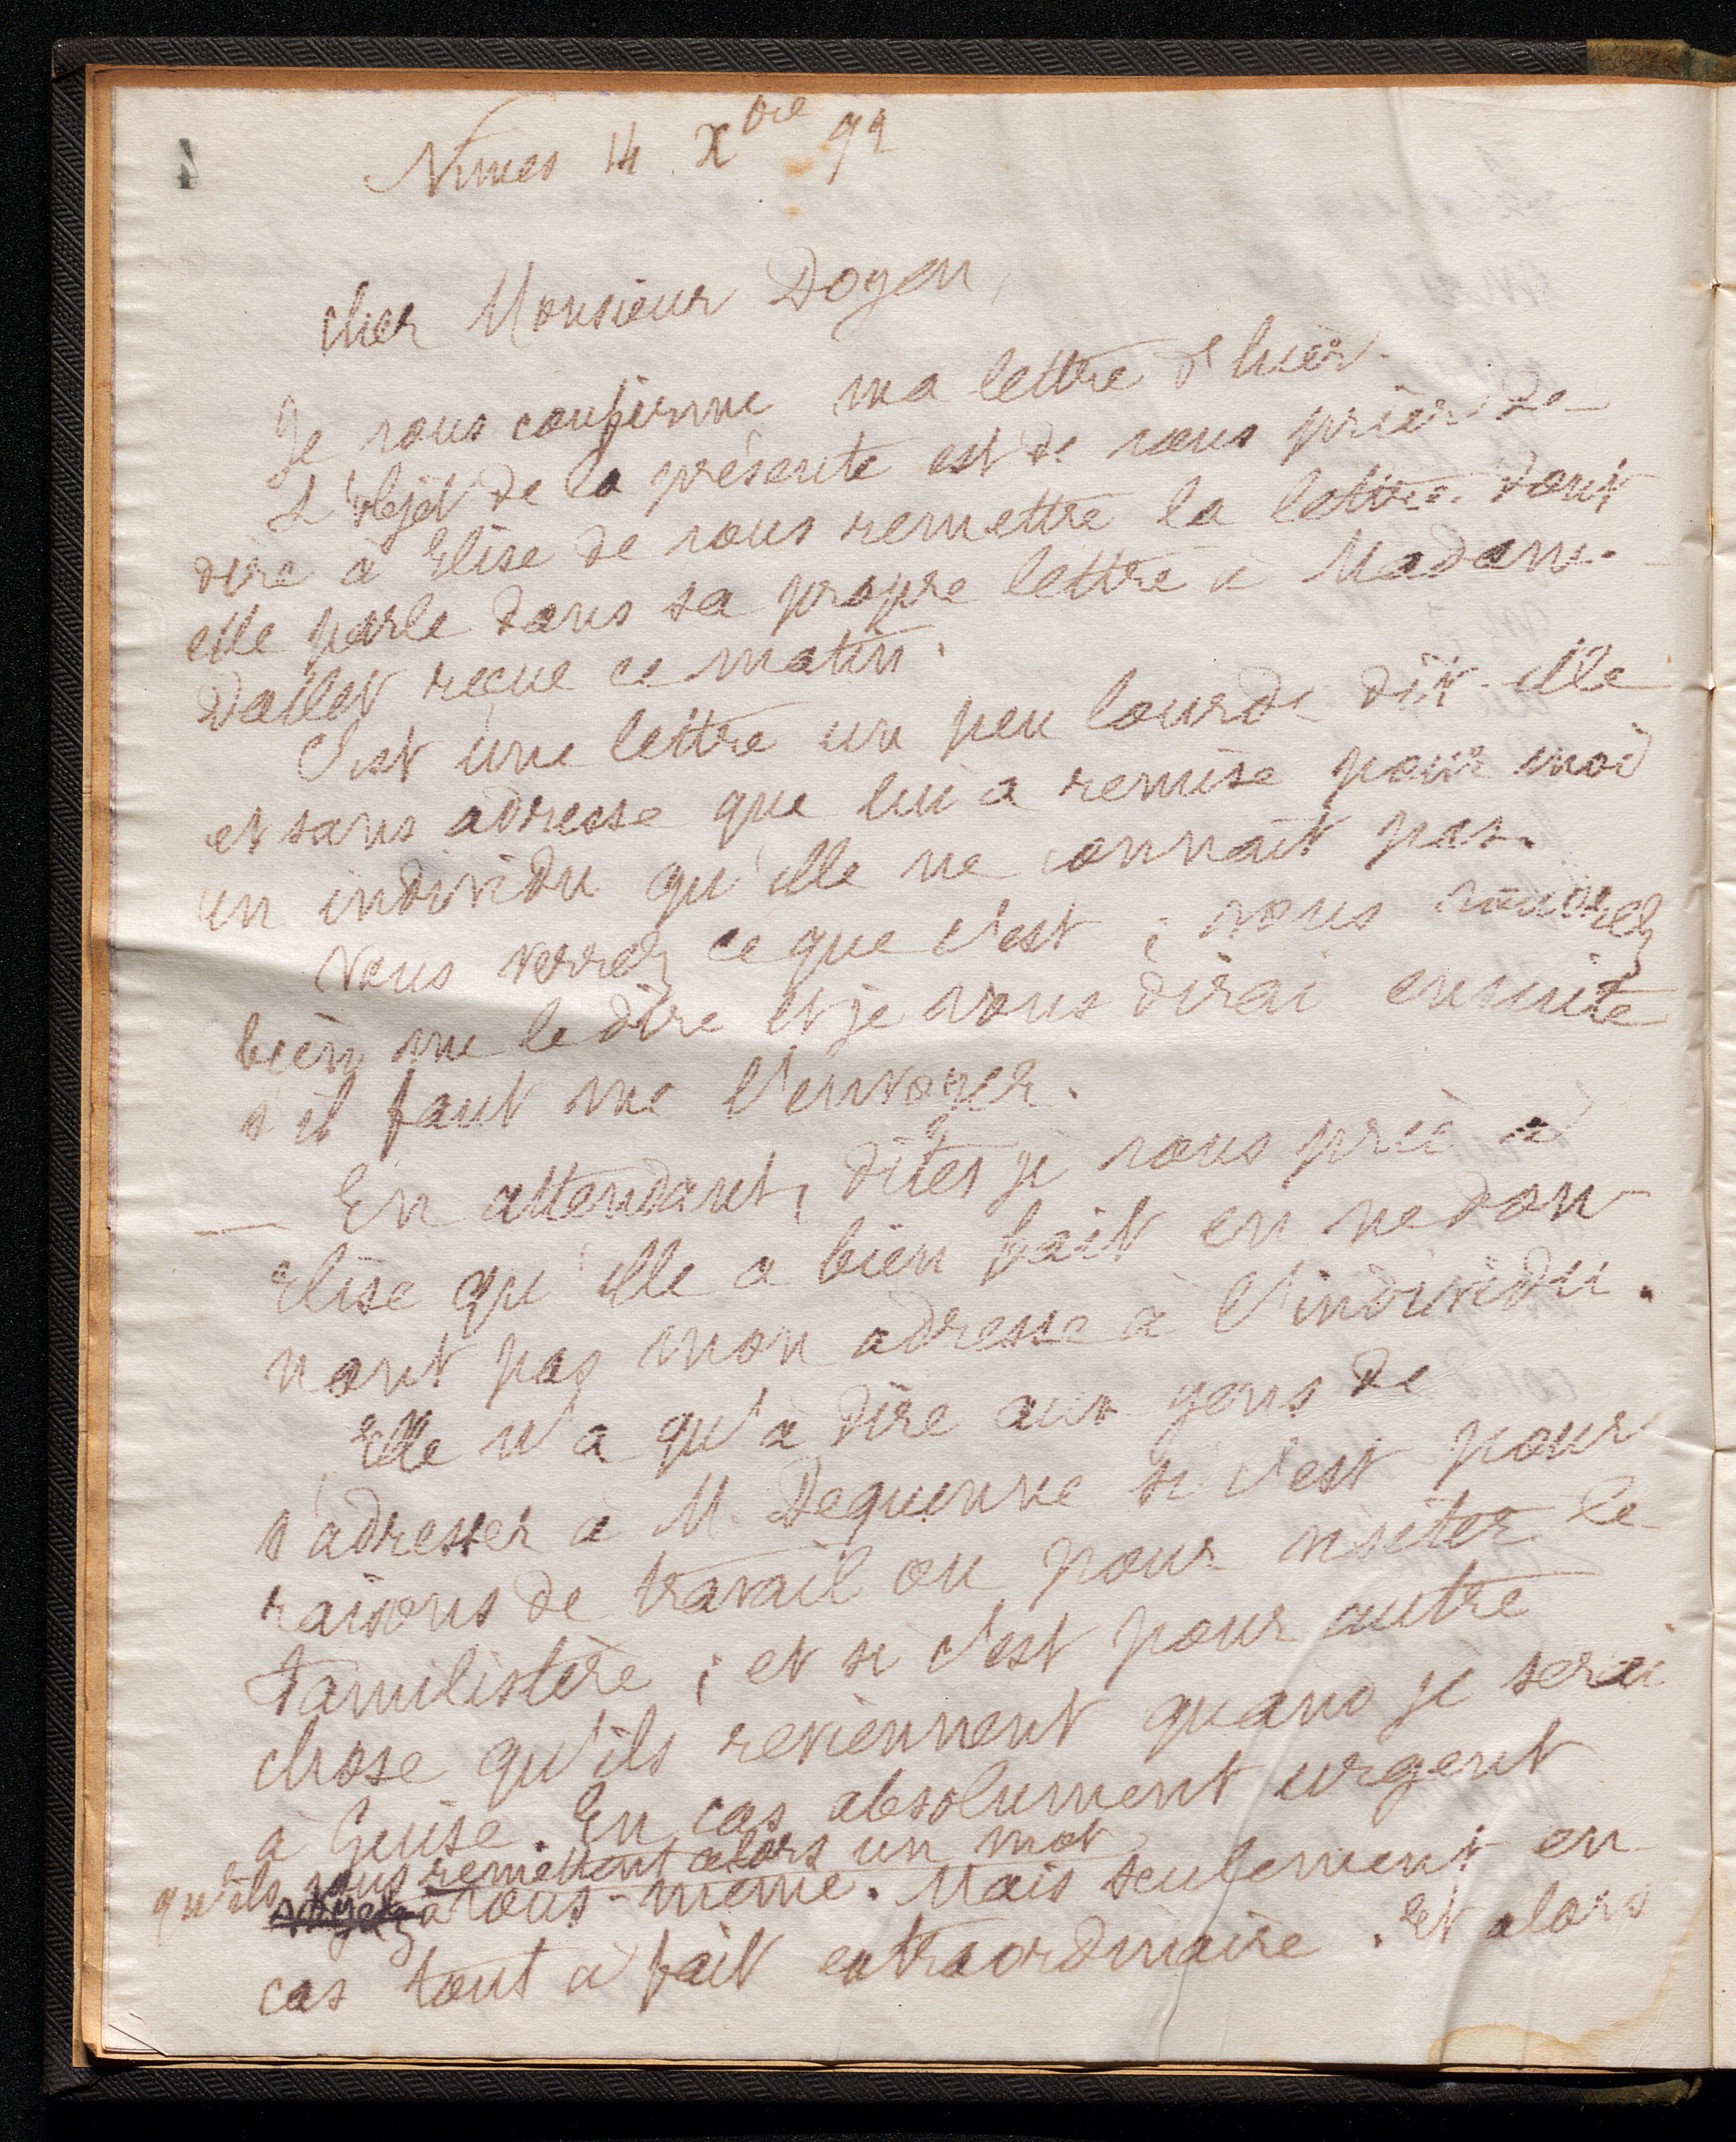 Nimes 14 Xbre 92
Cher Monsieur Doyen,
Je vous confirme ma lettre d'hier.
L'objet de la présente est de vous prier de
dire à Elise de vous remettre la lettre dont
elle parle dans sa propre lettre à Madame
Dallet reçue ce matin.
C'est une lettre un peu lourde dit-elle
et sans adresse que lui a remise pour moi
un individu qu'elle ne connaît pas.
Vous verrez ce que c'est ; vous voudrez
bien me le dire et je vous dirai ensuite
s'il faut me l'envoyer.
En attendant, dites je vous prie à
Elise qu'elle a bien fait en ne don-
nant pas mon adresse à l'individu.
Elle n'a qu'à dire aux gens de
s'adresser à M. Dequenne si c'est pour
raisons de travail ou pour visiter le
Familistère ; et si c'est pour autre
chose qu'ils reviennent quand je serai
à Guise. En cas absolument urgent
qu'ils vous remettent alors un mot
à vous-même. Mais seulement en
cas tout à fait extraordinaire. Et alors